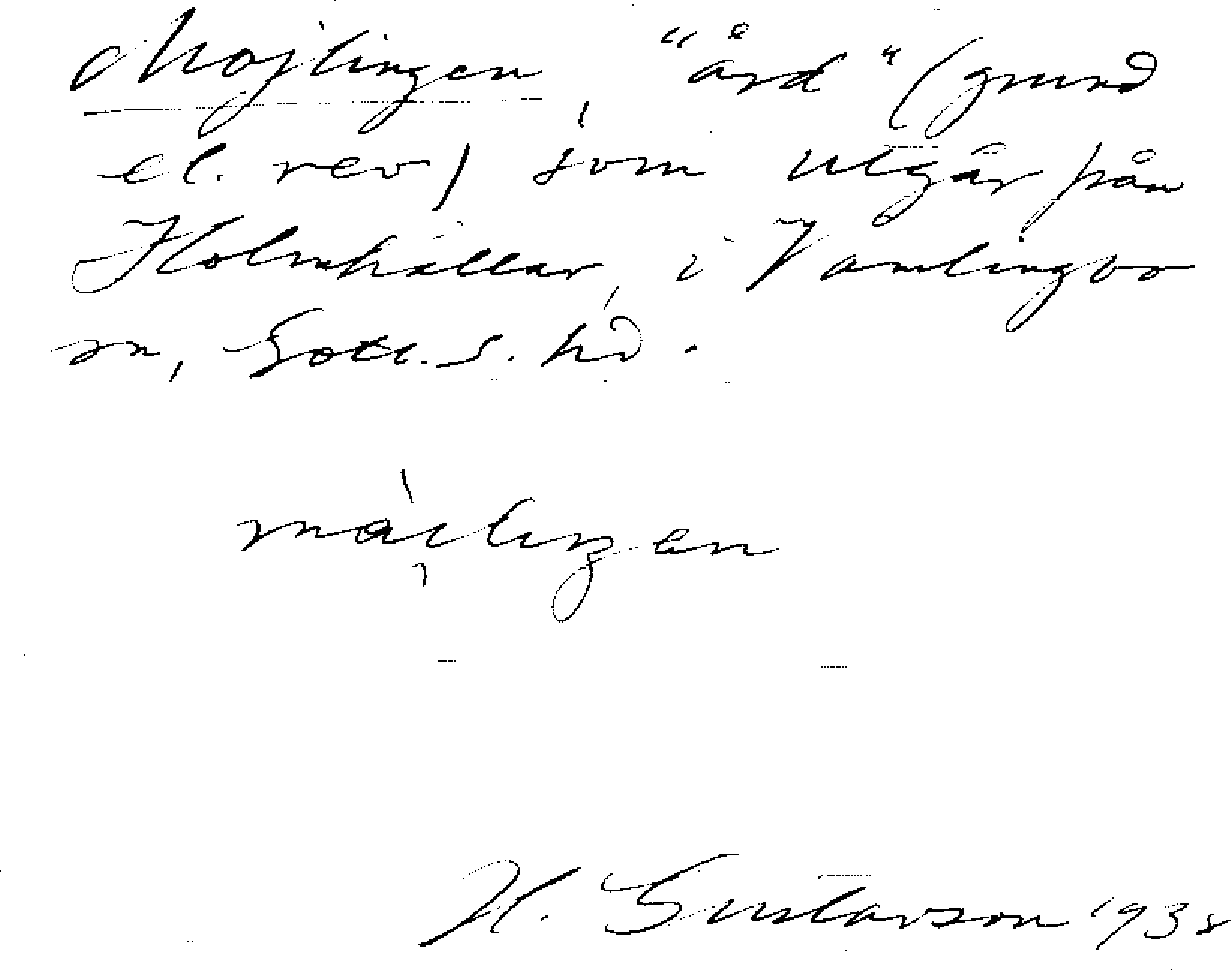 Majlingen, "ård" (grund
el. rev) som utgår från
Holmhällar, i Vamlingbo
sn, Gotl. S. hd.
H. Gustavson 1938